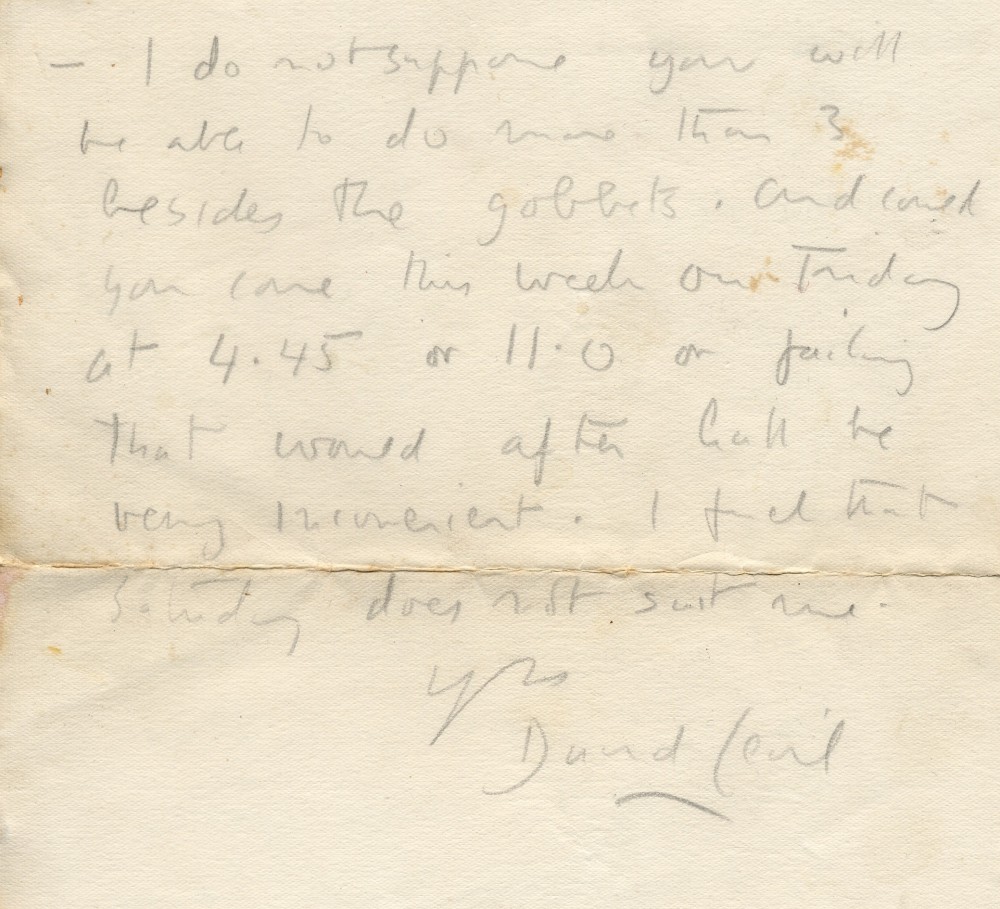 — . I do not suppose you will
be able to do more than 3
besides the gobbets. And could
you come this week on Friday
at 4.45 or 11.0 or failing
that would after hall be
very inconvenient. I find that
Saturday does not suit me.
Yrs
David Cecil